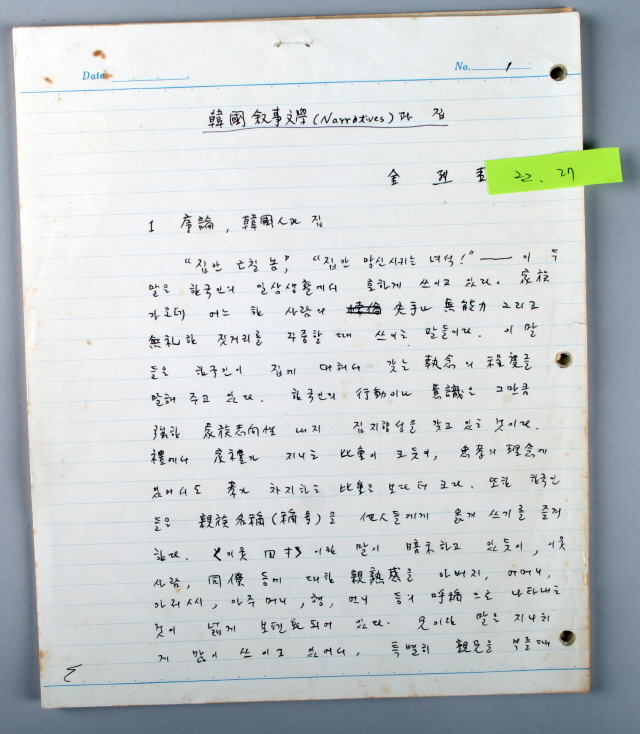 Date
No. 1
韓國 敍事文學 (Narratives) 과 집
金 烈 圭
22. 27
1 序論, 韓國人과 집
"집안 亡칠 놈", "집안 망신시키는 녀석!" —— 이 두
말은 한국인의 일상생활에서 흔하게 쓰이고 있다. 家族
가운데 어느 한 사람의 失手나 無能力 그리고
無礼한 짓거리를 각종할 때 쓰이는 말들이다. 이 말
들은 한국인이 집에 대해서 갖는 執念의 程度를
말해 주고 있다. 한국인의 行動이나 意識은 그만큼
强한 家族志向性 내지 집지향성을 갖고 있는 것이다.
禮에서 家禮가 지니는 比重이 크듯이, 忠孝의 理念에
있어서도 孝가 차지하는 比重은 보다 더 크다. 또한 한국인
들은 親族名稱(稱号)을 他人들에게 옮겨 쓰기를 즐겨
한다. 《이웃 四寸》이란 말이 暗示하고 있듯이, 이웃
사람, 同僚 등에 대한 親熟感을 아버지, 어머니,
아저씨, 아주머니, 형, 언니 등의 呼稱으로 나타내는
것이 넓게 보편화되어 있다. 兄이란 말은 지나치
게 많이 쓰이고 있어서, 특별히 親兄을 부를 때